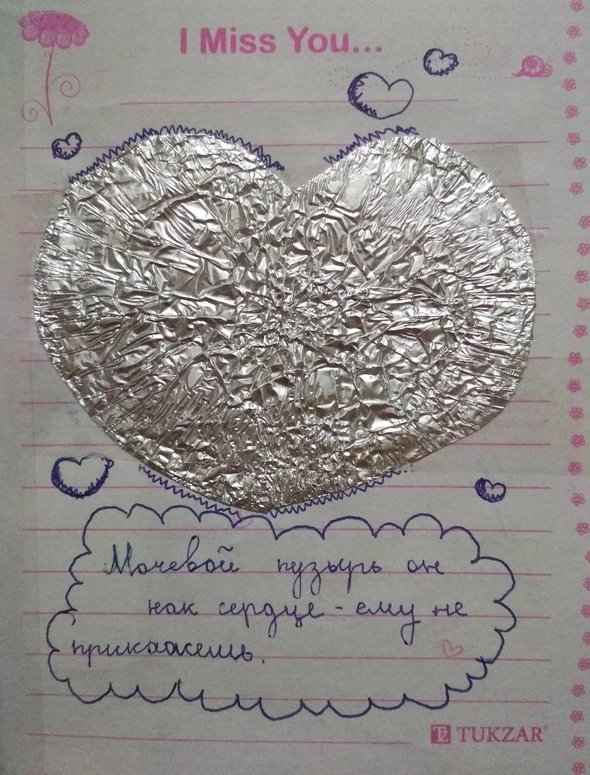 I Miss You...
Мочевой пузырь он
как сердце - ему не
прикажешь.
TUKZAR